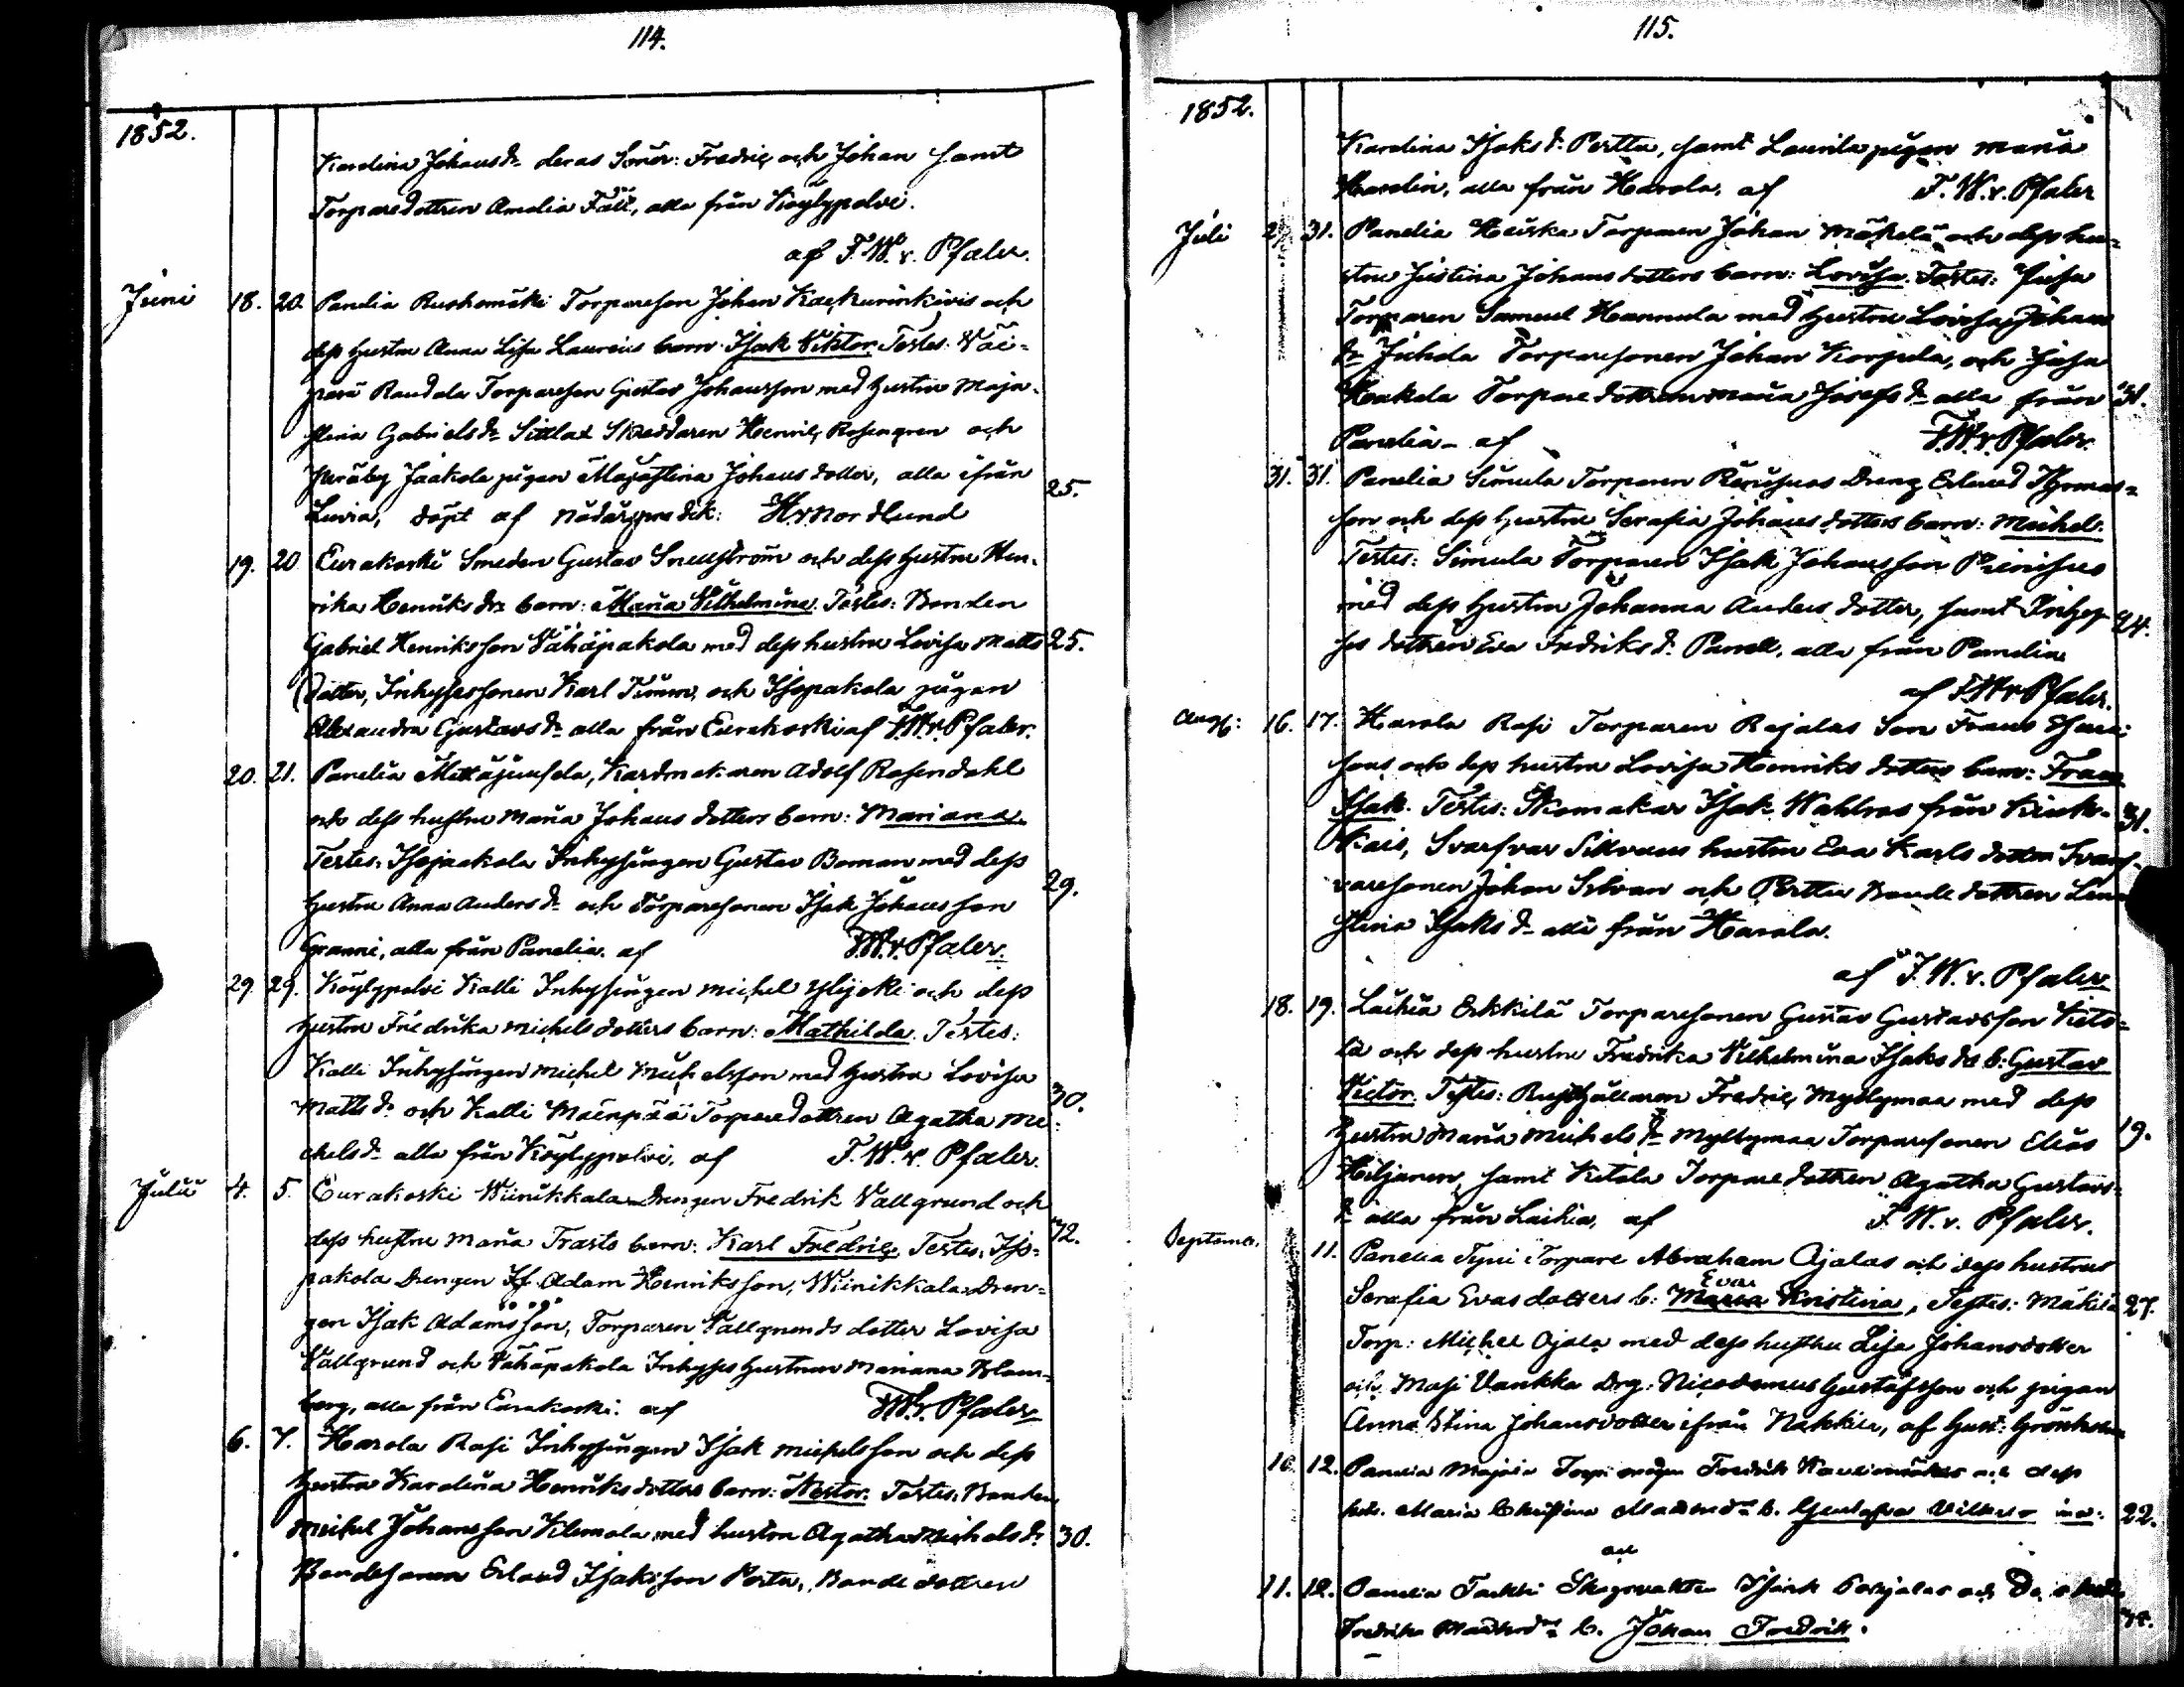 114.
1852.
Karolina Johansdr deras Söner: Fredric och Johan samt
Torparedottren Amalia Fält, alla från Köylypolvi.
af F.W.v. Pfaler.
Juni 18. 20. Panelia Ruohomäki Torpareson Johan Kaskurinkivis och
dess hustru Anna Lisa Laureus barn: Isak Viktor. Testes: Väi-
perä Raudala Torpareson Gustav Johansson med hustru Maja-
stina Gabrielsdr Sittlax Skreddaren Henric Rosengren och
Jaakola pigan Majastina Johansdotter, alla ifrån
Luvia, döpt af H v Nordlund 25.
19. 20 Eurakoski Smeden Gustav Snellström och dess hustru Hen-
rika Henriksdrs barn: Maria Vilhelmina. Testes: Bonden
Gabriel Henriksson Vähäpakola med dess hustru Lovisa Matts 25.
dotter, Inhysessonen Karl Timm, och Isopakola pigan
Alexandra Gustavsdr alla från Eurakoski af F.W.v. Pfaler.
20. 21. Panelia Mettäjuusela, Kardmakaren Adolf Rosendahl
och dess hustru Maria Johansdotters barn: Mariana.
Testes: Isojaakola Inhysingen Gustav Boman med dess
hustru Anna Andersdr och Torparesonen Isak Johansson 29.
Granni, alla från Panelia. af F.W.v. Pfaler.
29. 29. Köylypolvi Kalli Inhysingen Michel Ylijoki och dess
hustru Fredrika Michelsdotters barn: Mathilda. Testes:
Kalli Inhysingen Michel Michelsson med hustru Lovisa
Mattsdr och Kalli Mäenpää Torparedottren Agatha Mi- 30.
chelsdr alla från Köylypolvi, af F.W.v. Pfaler.
Julii 4. 5. Eurakoski Wiinikkala Drengen Fredrik Vallgrund och
dess hustru Maria Trasts barn: Karl Fredric, Testes: Iso- 42.
pakola Drengen Adam Henriksson, Wiinikkala Dren-
gen Isak Adamsson, Torparen Vallgrunds dotter Lovisa
Vallgrund och Vähäpakola Inhyses hustrun Mariana Blom-
berg, alla från Eurakoski. af F.W.v. Pfaler
6. 7. Harola Rasi Inhysingen Isak Michelsson och dess
hustru Karolina Henriksdotters barn: Nestor. Testes: Bonden
Michel Johansson Klemola med hustru Agatha Michelsdr 30.
Bondesonen Erland Isaksson Pertu, Bondedottren
115.
1852.
Karolina Isaksdr Perttu, samt Laurila pigan Maria
Harolin, alla från Harola, af F.W.v. Pfaler
Juli 31. Panelia Heiska Torparen Johan Mäkelä och dess hu-
stru Justina Johansdotters barn: Lovisa. Testes:
Torparen Samuel Hannula med hustru Lovisa Johans
dr Juhola Torparesonen Johan Korpela, och
Haakela Torparedottren Maria Josefsdr alla från 31.
Panelia – af F.W.v. Pfaler.
31. 31. Panelia Simula Torparen Dreng Edvard Thomas-
son och dess hustru Serafia Johansdotters barn: Michel.
Testes: Simula Torparen Isak Johansson
med dess hustru Johanna Andersdotter, samt Inhyse- 94.
ses dottren Eva Fredriksdr Panell, alla från Panelia
af F.W.v. Pfaler.
Aug: 16. 17. Harola Rasi Torparen Rajalas Son Frans
sons och dess hustru Lovisa Henriksdotters barn: Frans
Isak. Testes: Skomakar Isak Wahlros från Kiuk- 31.
Kais, Svarfvar Silvans hustru Eva Karlsdotter Svarf-
varesonen Johan Silvan och Perttu Bondedottren Lena
Stina Isaksdr alla från Harola.
af F.W.v. Pfaler
18. 19. Laihia Erkkilä Torparesonen Gustav Gustavsson Kieto-
la och dess hustru Fredrika Vilhelmina Isaksdrs b: Gustav
Victor. Testes: Rusthållaren Fredric Myllymaa med dess
hustru Maria Michelsdr Myllymaa Torparesonen Elias 19.
Hiljanen, samt Kitola Torparedottren Agatha Gustavs-
dr alla från Laihia, af F.W.v. Pfaler.
September. 11. Panelia Tyni Torpare Abraham Ojalas och dess hustrus
Serafia Evasdotters b: Maria Eva Kristina, Testes: Mäkilä 27.
Torp: Michel Ojala med dess hustru Lisa Johansdotter
och Masi Vankka Drg: Nicodemus Gustafsson och pigan
Anna Stina Johansdotter ifrån Nakkila, af Gust: Grönholm
10. 12. Panelia Majala Fredrik och dess
hu. Maria Christina b. Gustafva Vilhelmina: 22.
11. 12. Panelia Tarkki Skogsvakten Isaak Pohjalas och
Fredrika b. Johan Fredrik.